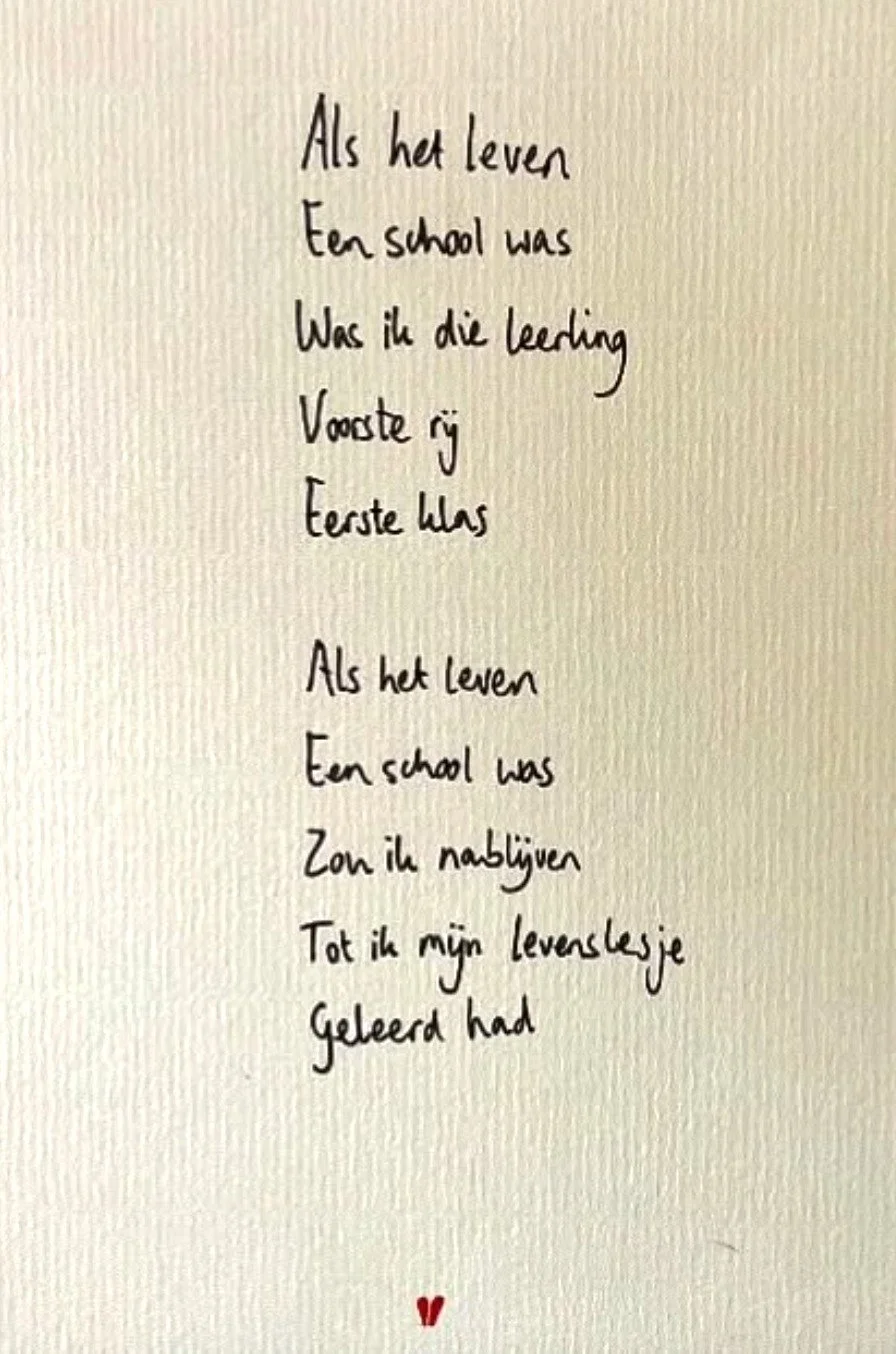 Als het leven
Een school was
Was ik die leerling
Voorste rij
Eerste klas
Als het leven
Een school was
Zou ik nablijven
Tot ik mijn levenslesje
Geleerd had